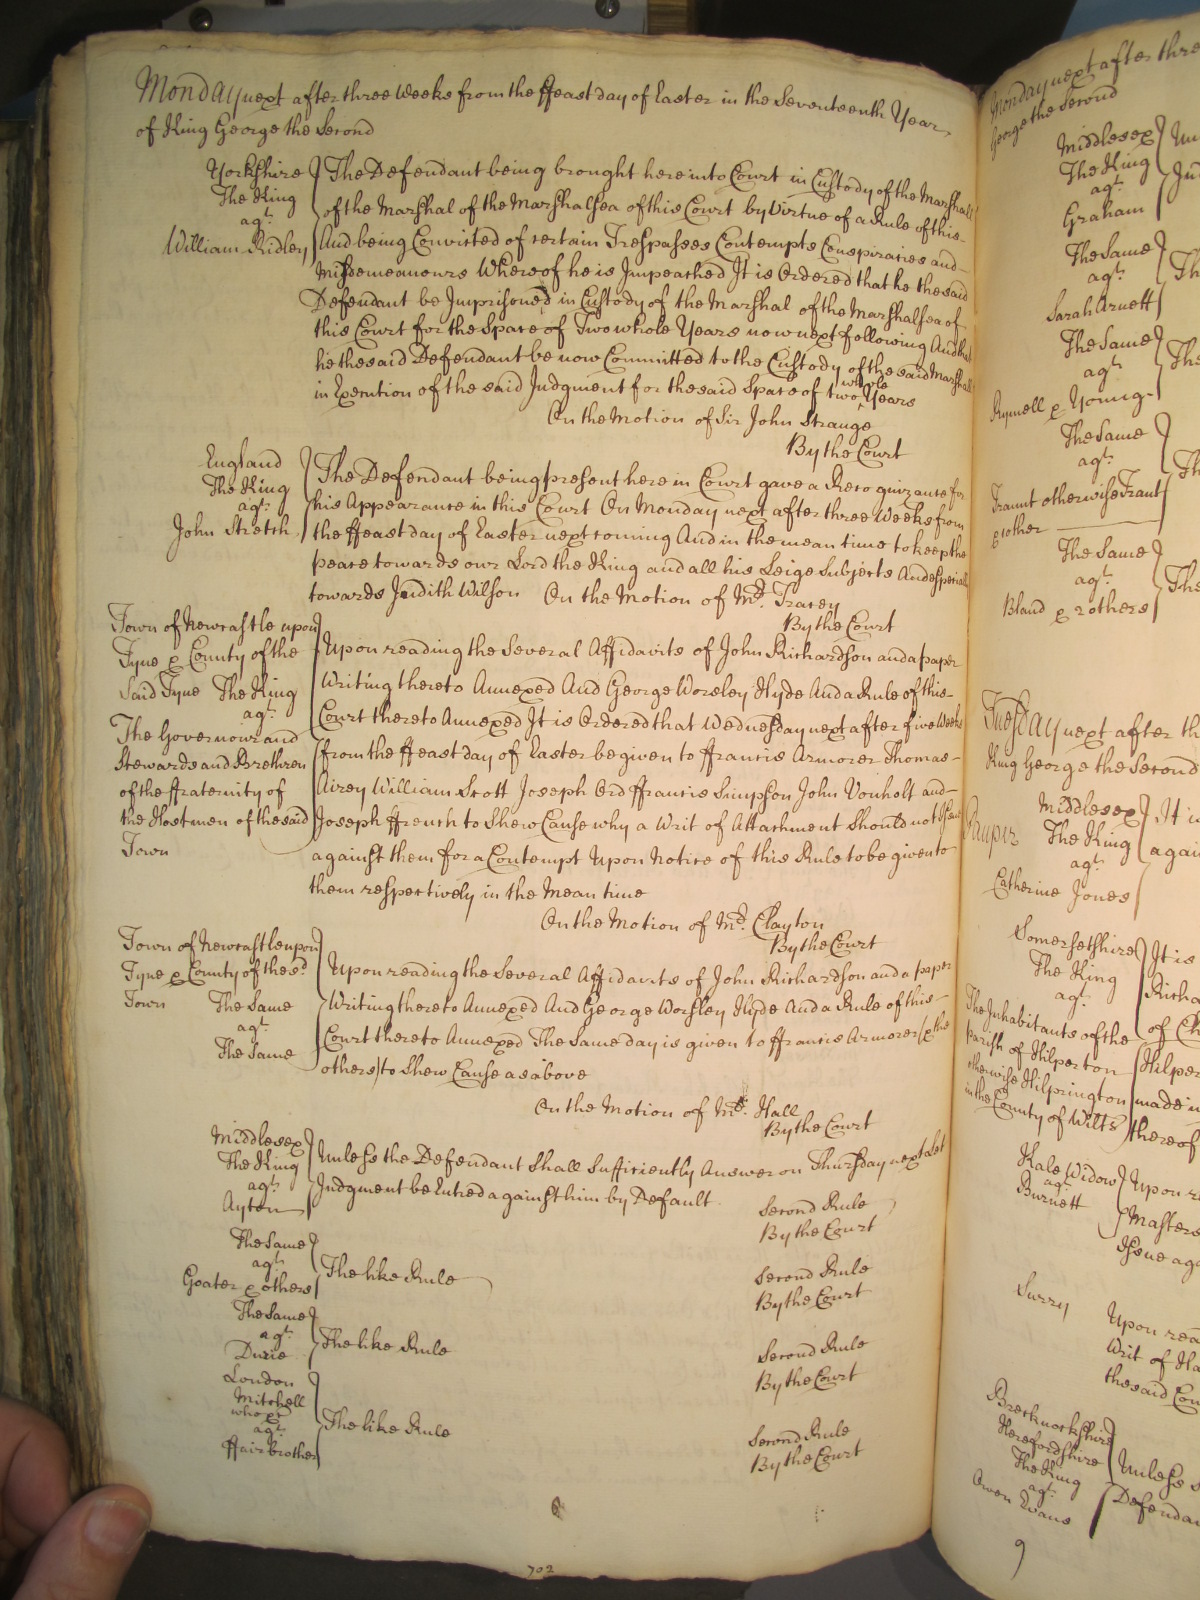 Monday next after three Weeks from the ffeast day of Easter in the Seventeenth Year
of King George the Second
Yorkshire
The King
agt.
William Ridley
The Defendant being brought here into Court in Custody of the Marshall
of the Marshal of the Marshalsea of this Court by Virtue of a Rule of this
And being Convicted of certain Trespasses Contempts Conspiracies and
Misdemeanours Whereof he is Impeached It is Ordered that he the said
Defendant be Imprisoned in Custody of the Marshal of the Marshalsea of
this Court for the Space of Two whole Years now next following And that
he the said Defendant be now Committed to the Custody of the said Marshall
in Execution of the said Judgment for the said Space of two whole Years
On the Motion of Sir John Strange
By the Court
England
The King
agt.
John Stretch
The Defendant being present here in Court gave a Recognizance for
his Appearance in this Court On Monday next after three Weeks from
the ffeast day of Easter next coming And in the mean time to keep the
peace towards our Lord the King and all his Leige Subjects And especially
towards Judith Wilson On the Motion of Mr. Tracey
By the Court
Town of Newcastle upon
Tyne & County of the
Said Tyne The King
agt.
The Governour and
Stewards and Brethren
of the ffraternity of
the Hostmen of the said
Town
Upon reading the Several Affidavits of John Richardson and a paper
Writing thereto Annexed And George Worsley Hyde And a Rule of this
Court thereto Annexed It is Ordered that Wednesday next after five Weeks
from the ffeast day of Easter be given to ffrancis Armorer Thomas
Airey William Scott Joseph Ord ffrancis Simpson John Vonholt and
Joseph ffrench to Shew Cause why a Writ of Attachment Should not Issue
against them for a Contempt Upon Notice of this Rule to be given to
them respectively in the Mean time
On the Motion of Mr. Clayton
By the Court
Town of Newcastle upon
Tyne & County of the sd.
Town The Same
agt.
The Same
Upon reading the Several Affidavits of John Richardson and a paper
Writing thereto Annexed And George Worsley Hyde And a Rule of this
Court thereto Annexed The Same day is given to ffrancis Armorer (& the
others) to Shew Cause as above
On the Motion of Mr. Hall
By the Court
Middlesex
The King
agt.
Ayton
Unless the Defendant Shall Sufficiently Answer on Thursday next
Judgment be Entred against him by Default
Second Rule
By the Court
The Same
agt.
Goater & others
The like Rule
Second Rule
By the Court
The Same
agt.
Durie
The like Rule
Second Rule
By the Court
London
Mitchell
who &c
agt.
ffairbrother
The like Rule
Second Rule
By the Court
702
Monday next after thre
George the Second
Middlesex
The King
agt.
Graham
The Same
agt.
Sarah Arnett
The
The Same
agt.
Rymell & Young
The
The Same
agt.
Traunt otherwise Traunt
& other
Th
The Same
agt.
Bland & 2 others
The
Tuesday next after th
King George the Second
Pauper
Middlesex
The King
agt.
Catherine Jones
It i
again
Somersetshire
The King
agt.
The Inhabitants of the
parish of Hilperton
otherwise Hilprington
in the County of Wilts
It is
Richa
of Ch
Hilper
made u
thereof
Hale Widow
agt.
Burnett
Upon re
Masters
Issue aga
Surry
Upon rea
Writ of Ha
the said Cou
Brecknockshire
Herefordshire
The King
agt.
Owen Evans
Unless s
Defendan
9